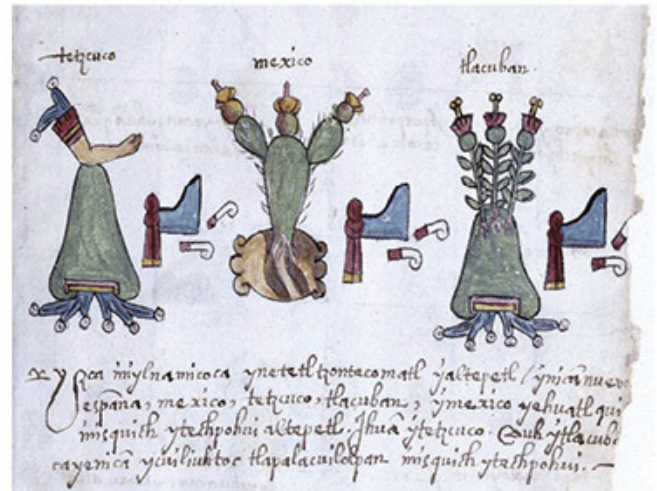 tetzcuco
mexico
tlacuban
yzca inylnamicoca ynetetl tzontecomatl yaltepetl / ynicā nueva
españa, mexico, tetzcuco, tlacuban, ymexico yehuatl qui
misquich ytechpohui altepetl. Jhuā ytetzcuco. Auh ytlacuba
cayenicā ycuiliuhtoc tlapalacuilolpan misquich ytechpohui.